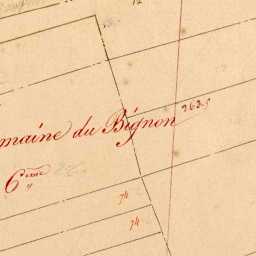 12
maine du Bignon 263.5
6.eme
74
74